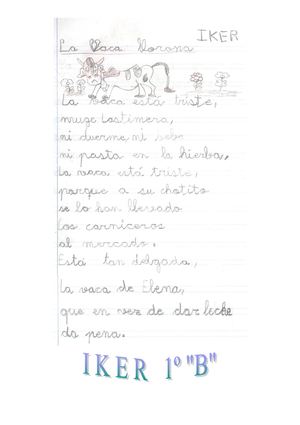 IKER
La Vaca Llorona
La vaca está triste,
muge lastimera,
ni duerme ni bebe
ni pasta en la hierba,
La vaca está triste,
porque a su chotito
se lo han llevado
los carniceros
al mercado.
Está tan delgada,
La vaca de Elena,
que en vez de dar leche
da pena.
IKER 1º "B"